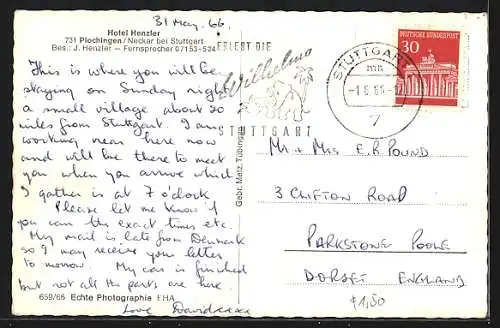 31 May. 66.
Hotel Henzler
731 Plochingen/Neckar bei Stuttgart
Bes.: J. Henzler – Fernsprecher 07153-
This is where you will be
staying on Sunday night
a small village about 30
miles from Stuttgart. I am
working near here now
and will be there to meet
you when you arrive which
I gather is at 7 o'clock
Please let me know if
you can the exact times etc.
My mail is late from Denmark
so I may receive your letter
to morrow. My car is finished
but not all the parts are here.
Love David xxx
659/66 Echte Photographie EHA
Gebr. Metz, Tübingen
ERLEBT DIE
Wilhelma
STUTTGART
STUTTGART
7
DEUTSCHE BUNDESPOST
30
Mr + Mrs E.R POUND
3 CLIFTON ROAD
PARKSTONE POOLE
DORSET ENGLAND
$1,50